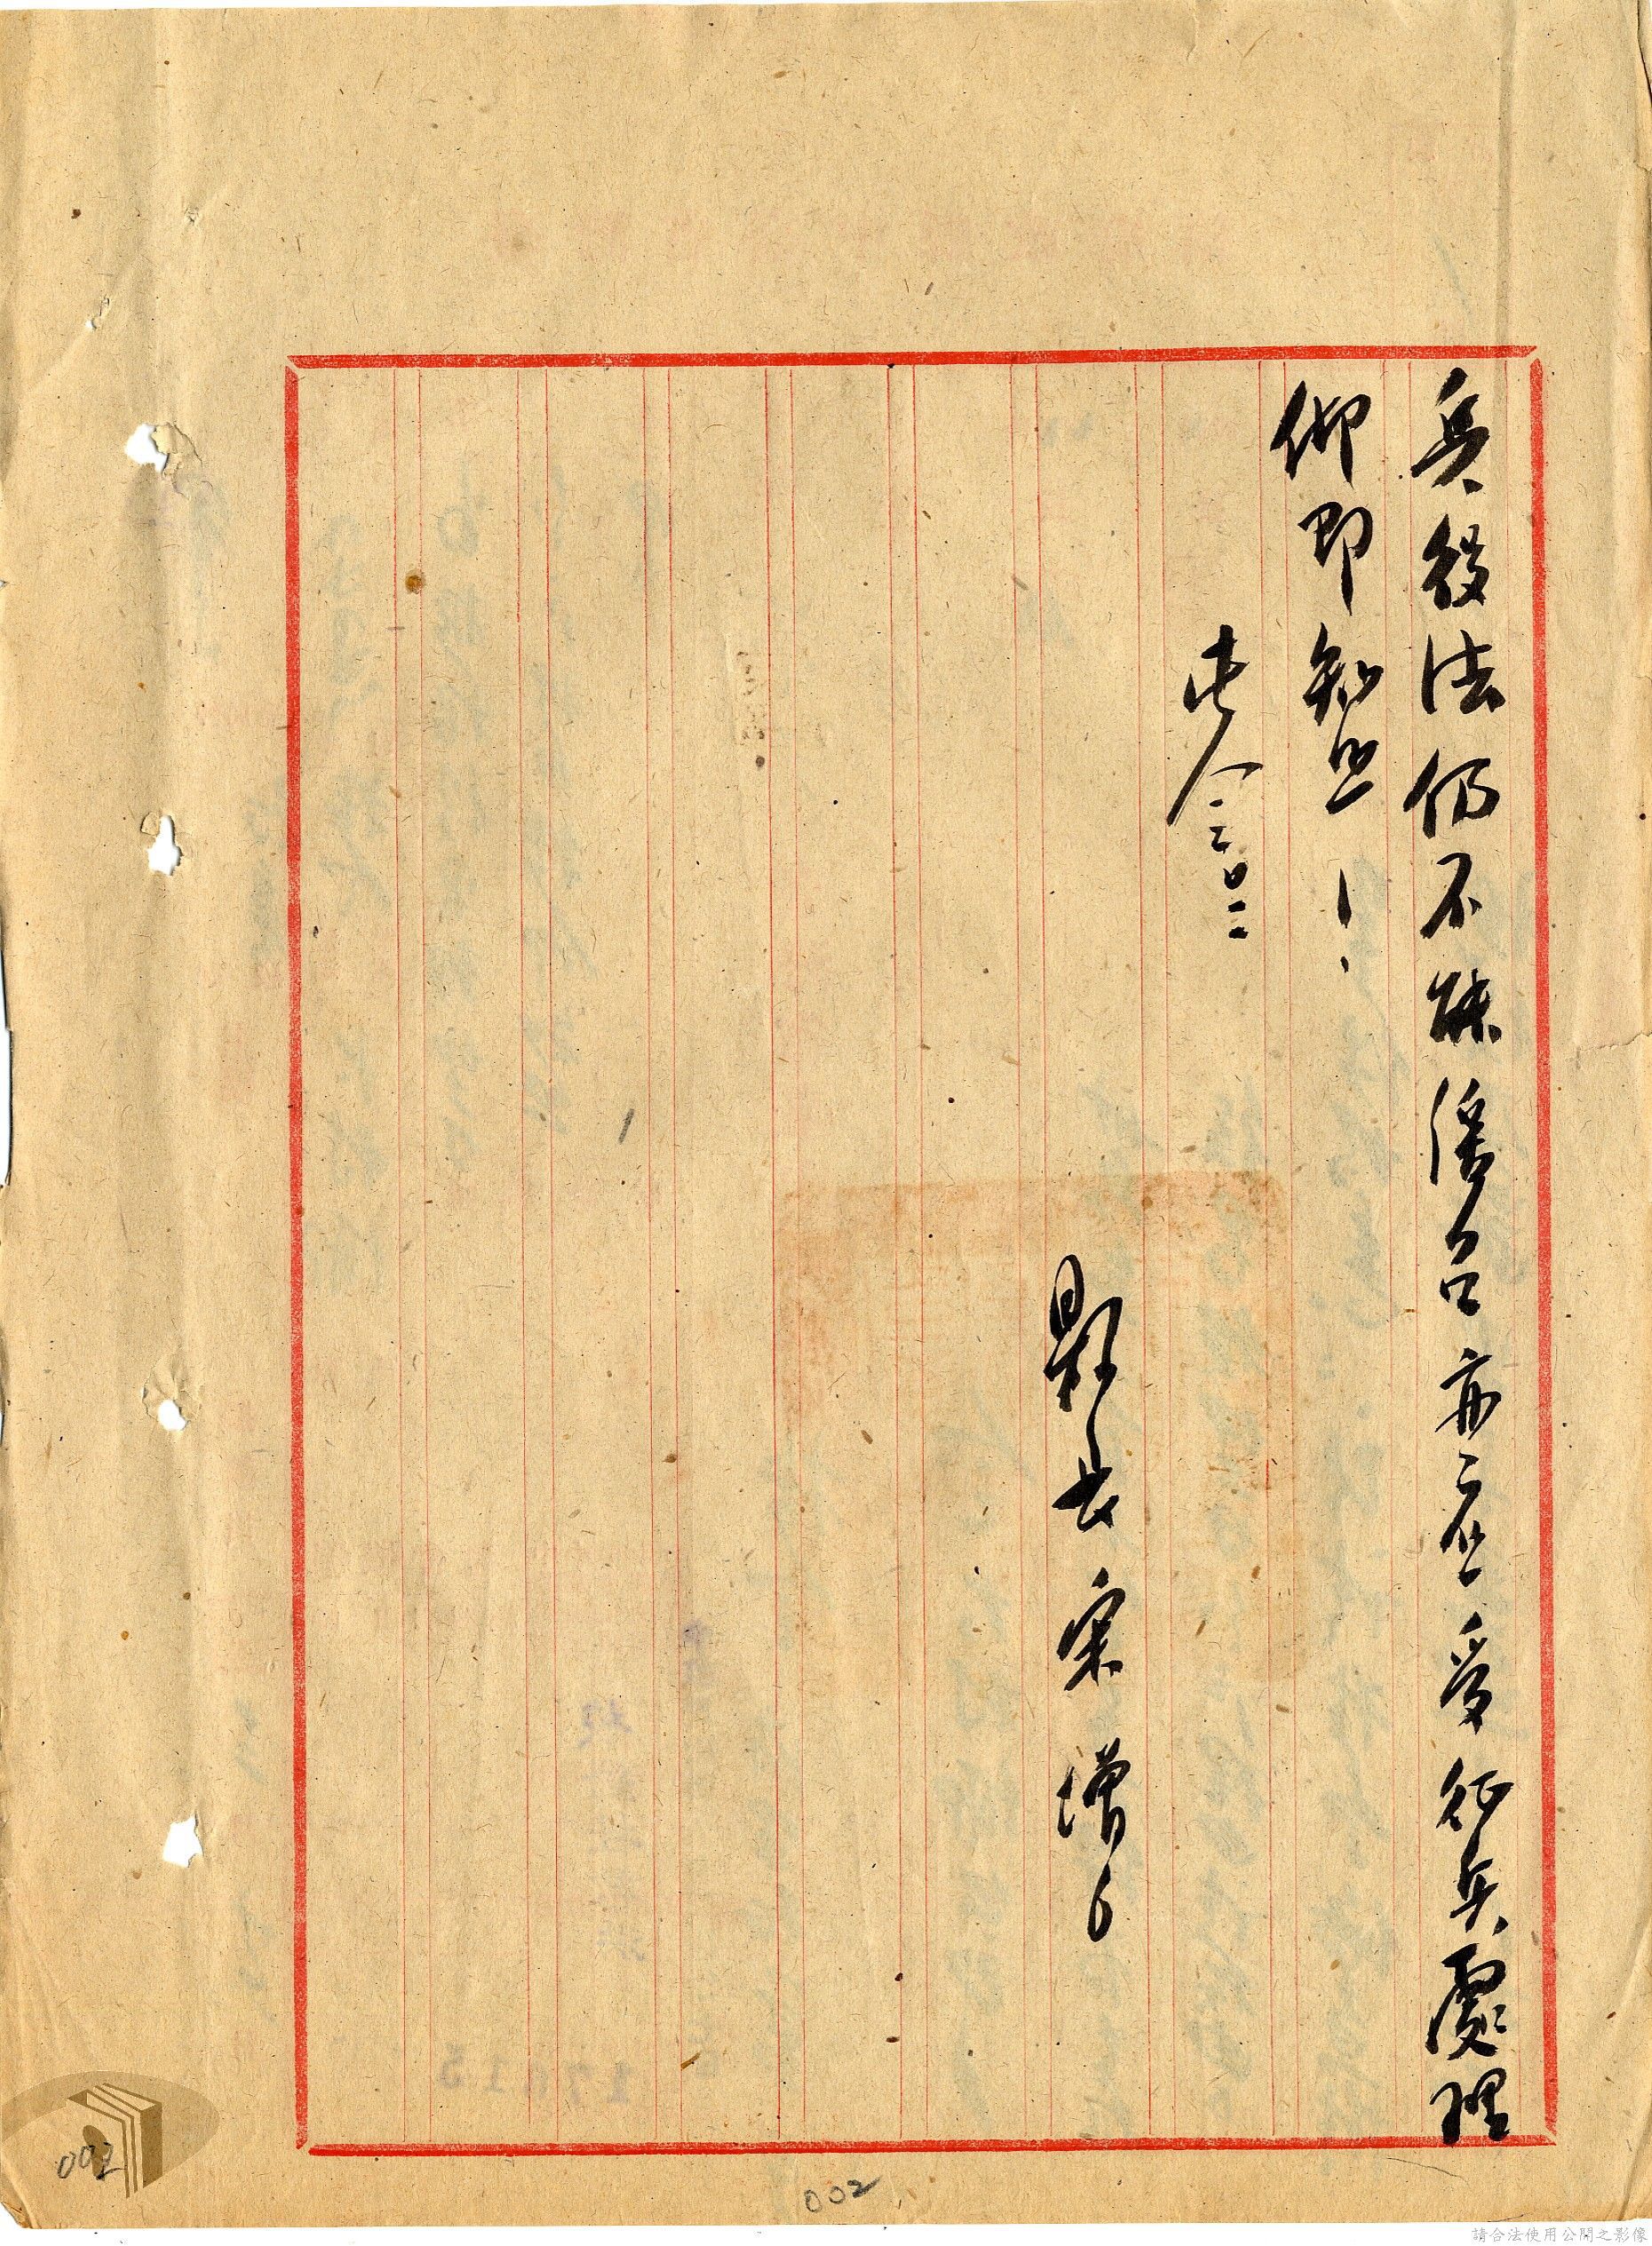 兵役法仍不能緩召亦應受征兵處理
仰即知照！
此令
縣長宋增
002
002
請合法使用公開之影像